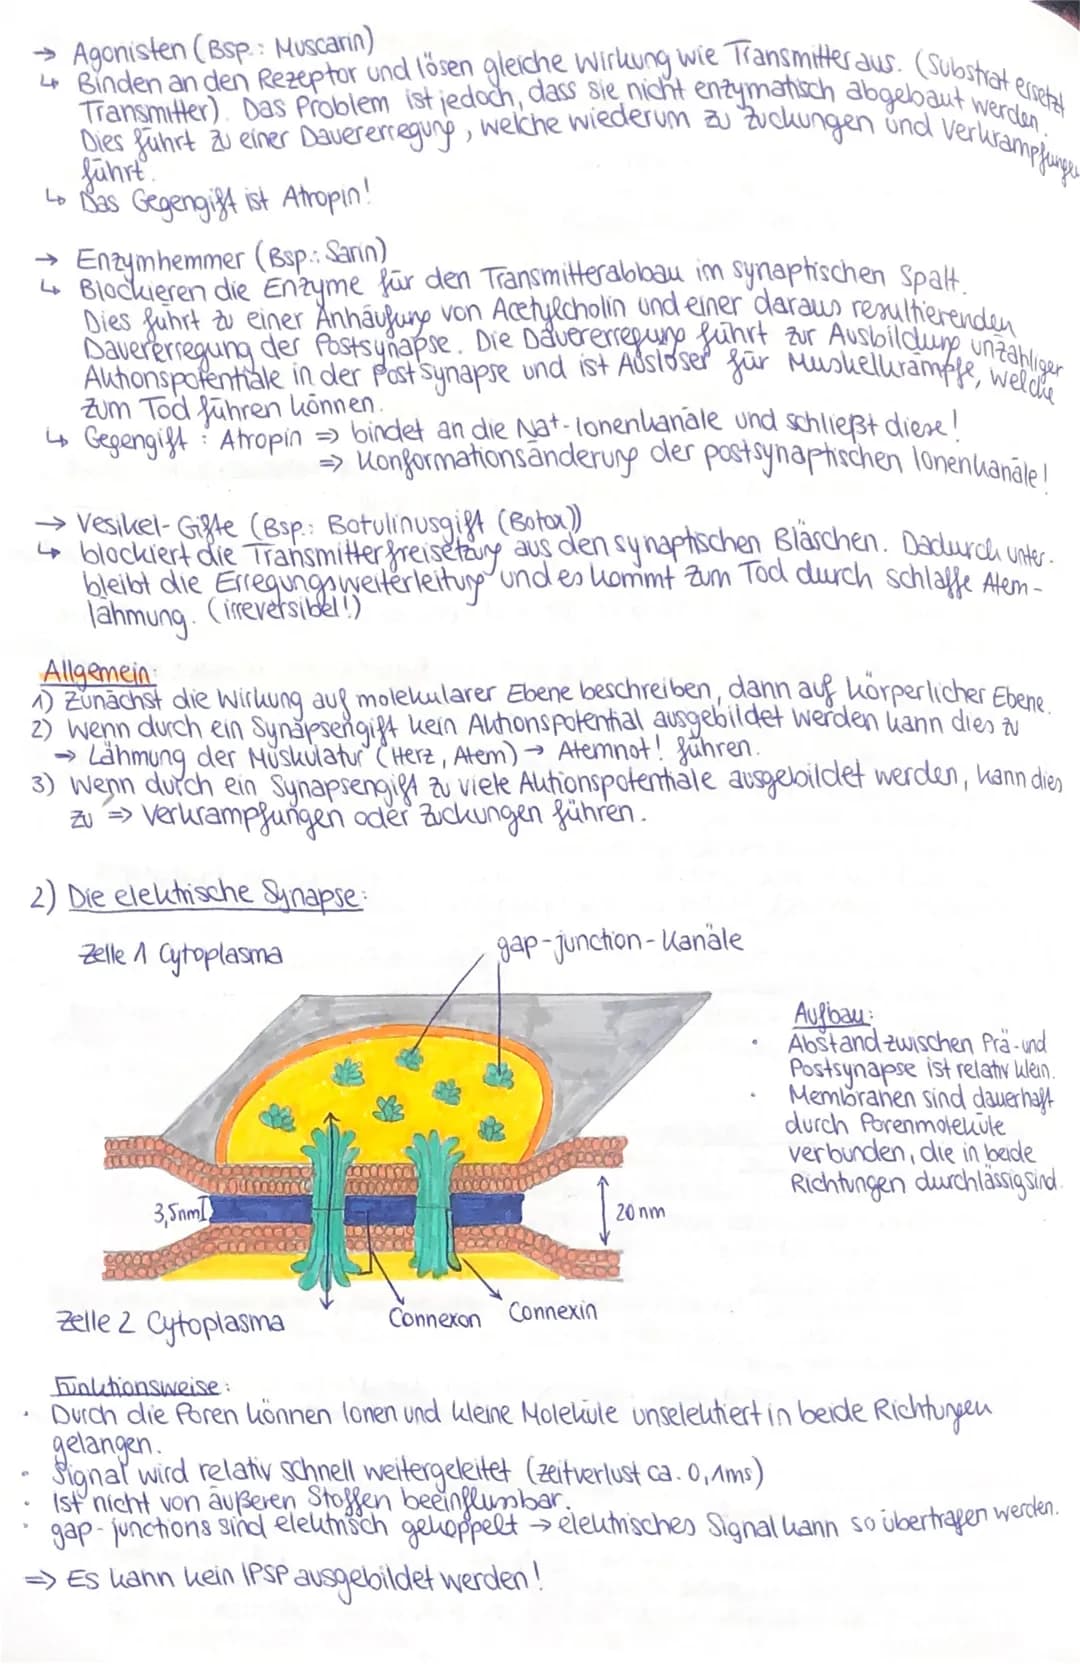 → Agonisten (Bsp.: Muscarin)
↳ Binden an den Rezeptor und lösen gleiche Wirkung wie Transmitter aus. (Substrat ersetzt
Transmitter). Das Problem ist jedoch, dass sie nicht enzymatisch abgebaut werden.
Dies führt zu einer Dauererregung, welche wiederum zu Zuckungen und Verkrampfungen
führt.
↳ Das Gegengift ist Atropin!
→ Enzymhemmer (Bsp.: Sarin)
↳ Blockieren die Enzyme für den Transmitterabbau im synaptischen Spalt.
Dies führt zu einer Anhäufung von Acetylcholin und einer daraus resultierenden
Dauererregung der Postsynapse. Die Dauererregung führt zur Ausbildung unzähliger
Aktionspotentiale in der Postsynapse und ist Auslöser für Muskelkrämpfe, welche
zum Tod führen können.
↳ Gegengift: Atropin ⇒ bindet an die Na+-Ionenkanäle und schließt diese!
⇒ Konformationsänderung der postsynaptischen Ionenkanäle!
→ Vesikel-Gifte (Bsp.: Botulinusgift (Botox))
↳ blockiert die Transmitterfreisetzung aus den synaptischen Bläschen. Dadurch unter-
bleibt die Erregungsweiterleitung und es kommt zum Tod durch schlaffe Atem-
lähmung. (irreversibel!)
Allgemein:
1) Zunächst die Wirkung auf molekularer Ebene beschreiben, dann auf körperlicher Ebene.
2) Wenn durch ein Synapsengift kein Aktionspotential ausgebildet werden kann dies zu
→ Lähmung der Muskulatur (Herz, Atem) → Atemnot! führen.
3) Wenn durch ein Synapsengift zu viele Aktionspotentiale ausgebildet werden, kann dies
zu ⇒ Verkrampfungen oder Zuckungen führen.
2) Die elektrische Synapse:
Zelle 1 Cytoplasma
gap-junction-Kanäle
Aufbau:
• Abstand zwischen Prä- und
Postsynapse ist relativ klein.
• Membranen sind dauerhaft
durch Porenmoleküle
verbunden, die in beide
Richtungen durchlässig sind.
3,5nm
20nm
Connexon
Connexin
Zelle 2 Cytoplasma
Funktionsweise:
• Durch die Poren können Ionen und kleine Moleküle unselektiert in beide Richtungen
gelangen.
• Signal wird relativ schnell weitergeleitet (Zeitverlust ca. 0,1ms)
• Ist nicht von äußeren Stoffen beeinflussbar.
• gap-junctions sind elektrisch gekoppelt → elektrisches Signal kann so übertragen werden.
⇒ Es kann kein IPSP ausgebildet werden!